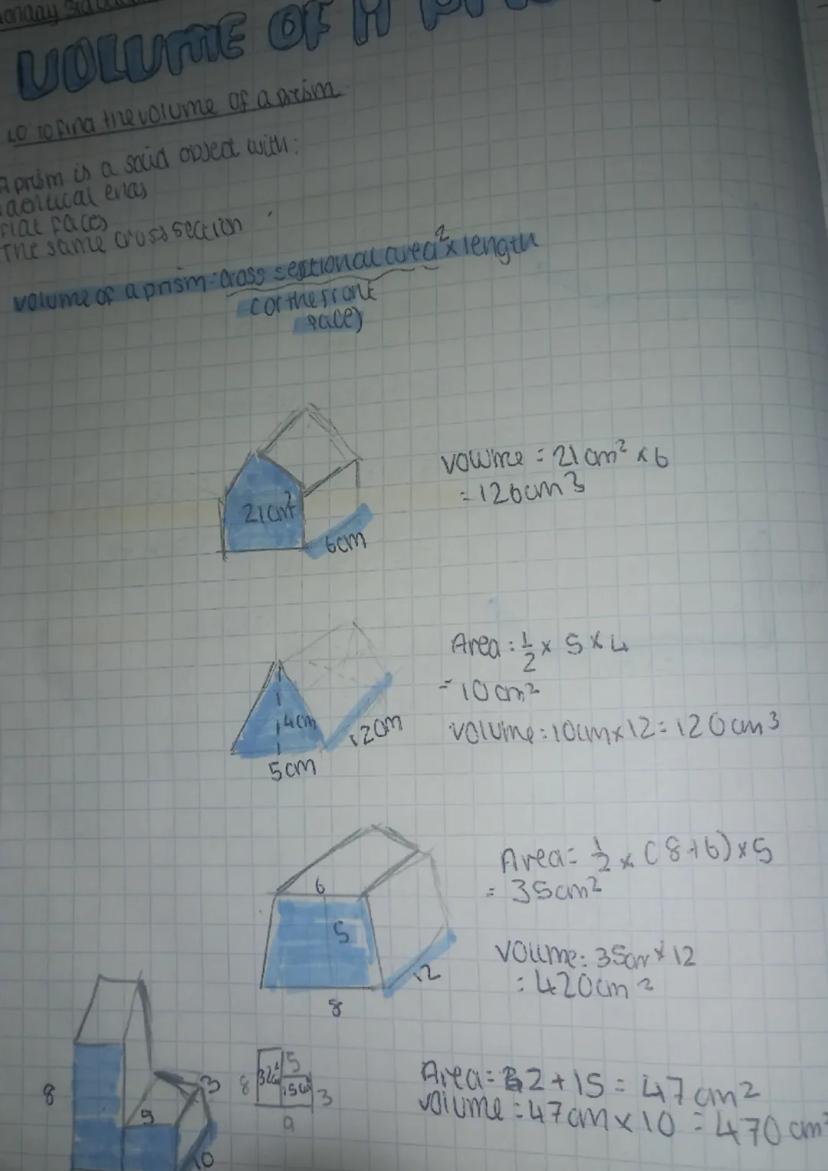 VOLUME OF A
LO To find the volume of a prism
A prism is a solid object with:
identical ends
flat faces
The same cross section
volume of a prism: cross sectional area² x length
(or the front
face)
21cm²
6cm
volume = 21cm² x 6
= 126cm³
4cm
5cm
12cm
Area: ½ x 5 x 4
= 10cm²
volume: 10cm x 12 = 120cm³
6
5
8
12
Area = ½ x (8+6) x 5
= 35cm²
Volume: 35cm x 12
= 420cm³
8
5
3
10
8
5
32
15cm
3
9
Area = 32 + 15 = 47cm²
volume = 47cm x 10 = 470cm³